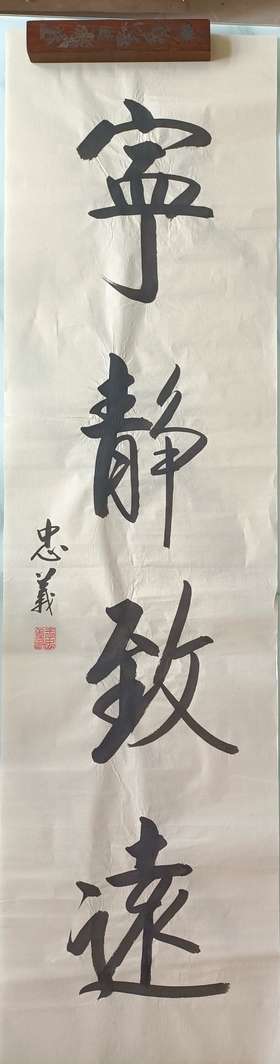 寧靜致遠
忠義